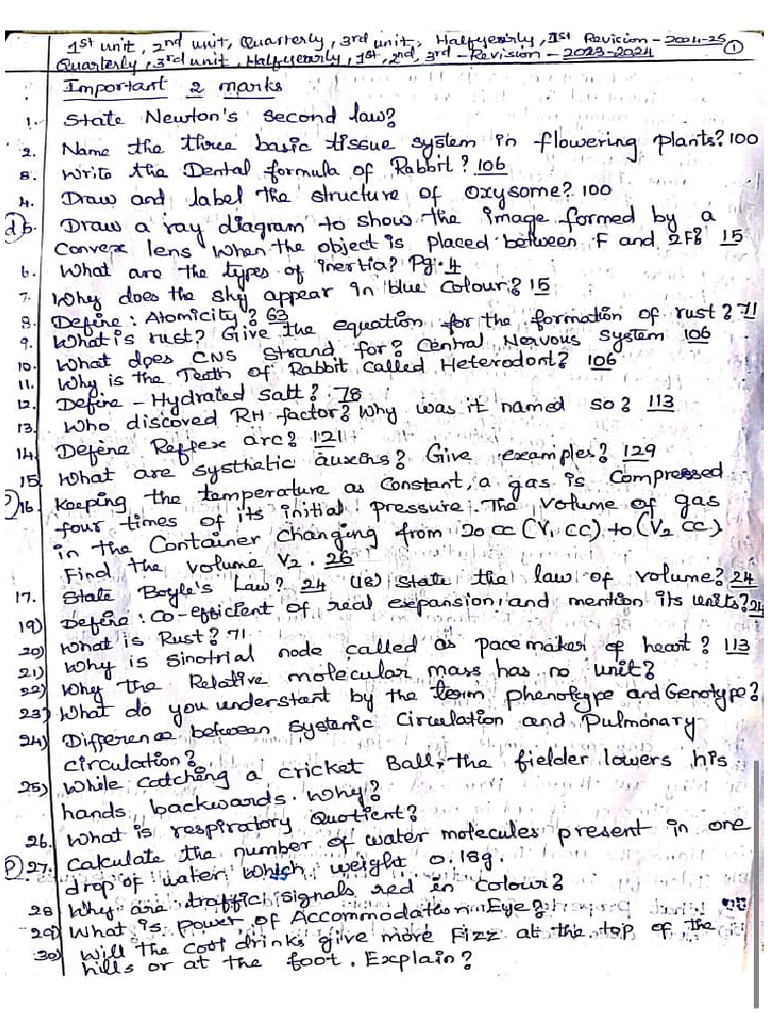 1st unit, 2nd unit, Quarterly, 3rd unit, Halfyearly, 1st Revision - 2024-25 ①
Quarterly, 3rd unit, Halfyearly, 1st, 2nd, 3rd - Revision - 2023-2024
Important 2 marks
1. State Newton's second law?
2. Name the three basic tissue system in flowering plants? 100
3. Write the Dental formula of Rabbit? 106
4. Draw and label the structure of Oxysome? 100
d 5. Draw a ray diagram to show the image formed by a
Convex lens when the object is placed between F and 2F? 15
6. What are the types of inertia? Pg. 4
7. Why does the sky appear in blue colour? 15
8. Define: Atomicity? 63
9. What is rust? Give the equation for the formation of rust? 71
10. What does CNS Strand for? Central Nervous System 106
11. Why is the Teeth of Rabbit called Heterodont? 106
12. Define - Hydrated salt? 78
13. Who discoved RH factor? Why was it named so? 113
14. Define Reflex arc? 121
15. What are systhetic auxins? Give examples? 129
P 16. Keeping the temperature as constant, a gas is compressed
four times of its initial pressure. The volume of gas
in the Container changing from 20 cc (V1 CC) to (V2 CC)
Find the volume V2. 26
17. State Boyle's Law? 24 (18) State the law of volume? 24
19) Define: Co-efficient of real expansion, and mention its units? 24
20) What is Rust? 71
21) Why is sinotrial node called as pacemaker of heart? 113
22) Why the Relative molecular mass has no unit?
23) What do you understant by the term phenotype and Genotype?
24) Difference between Systemic Circulation and Pulmonary
circulation?
25) While catching a cricket Ball, the fielder lowers his
hands backwards. Why?
26. What is respiratory Quotient?
P 27. Calculate the number of water molecules present in one
drop of water which weight 0.18g.
28 Why are traffic signals red in colour?
29) What is power of Accommodation Eye?
30) Will the cool drinks give more Fizz at the top of the
hills or at the foot. Explain?